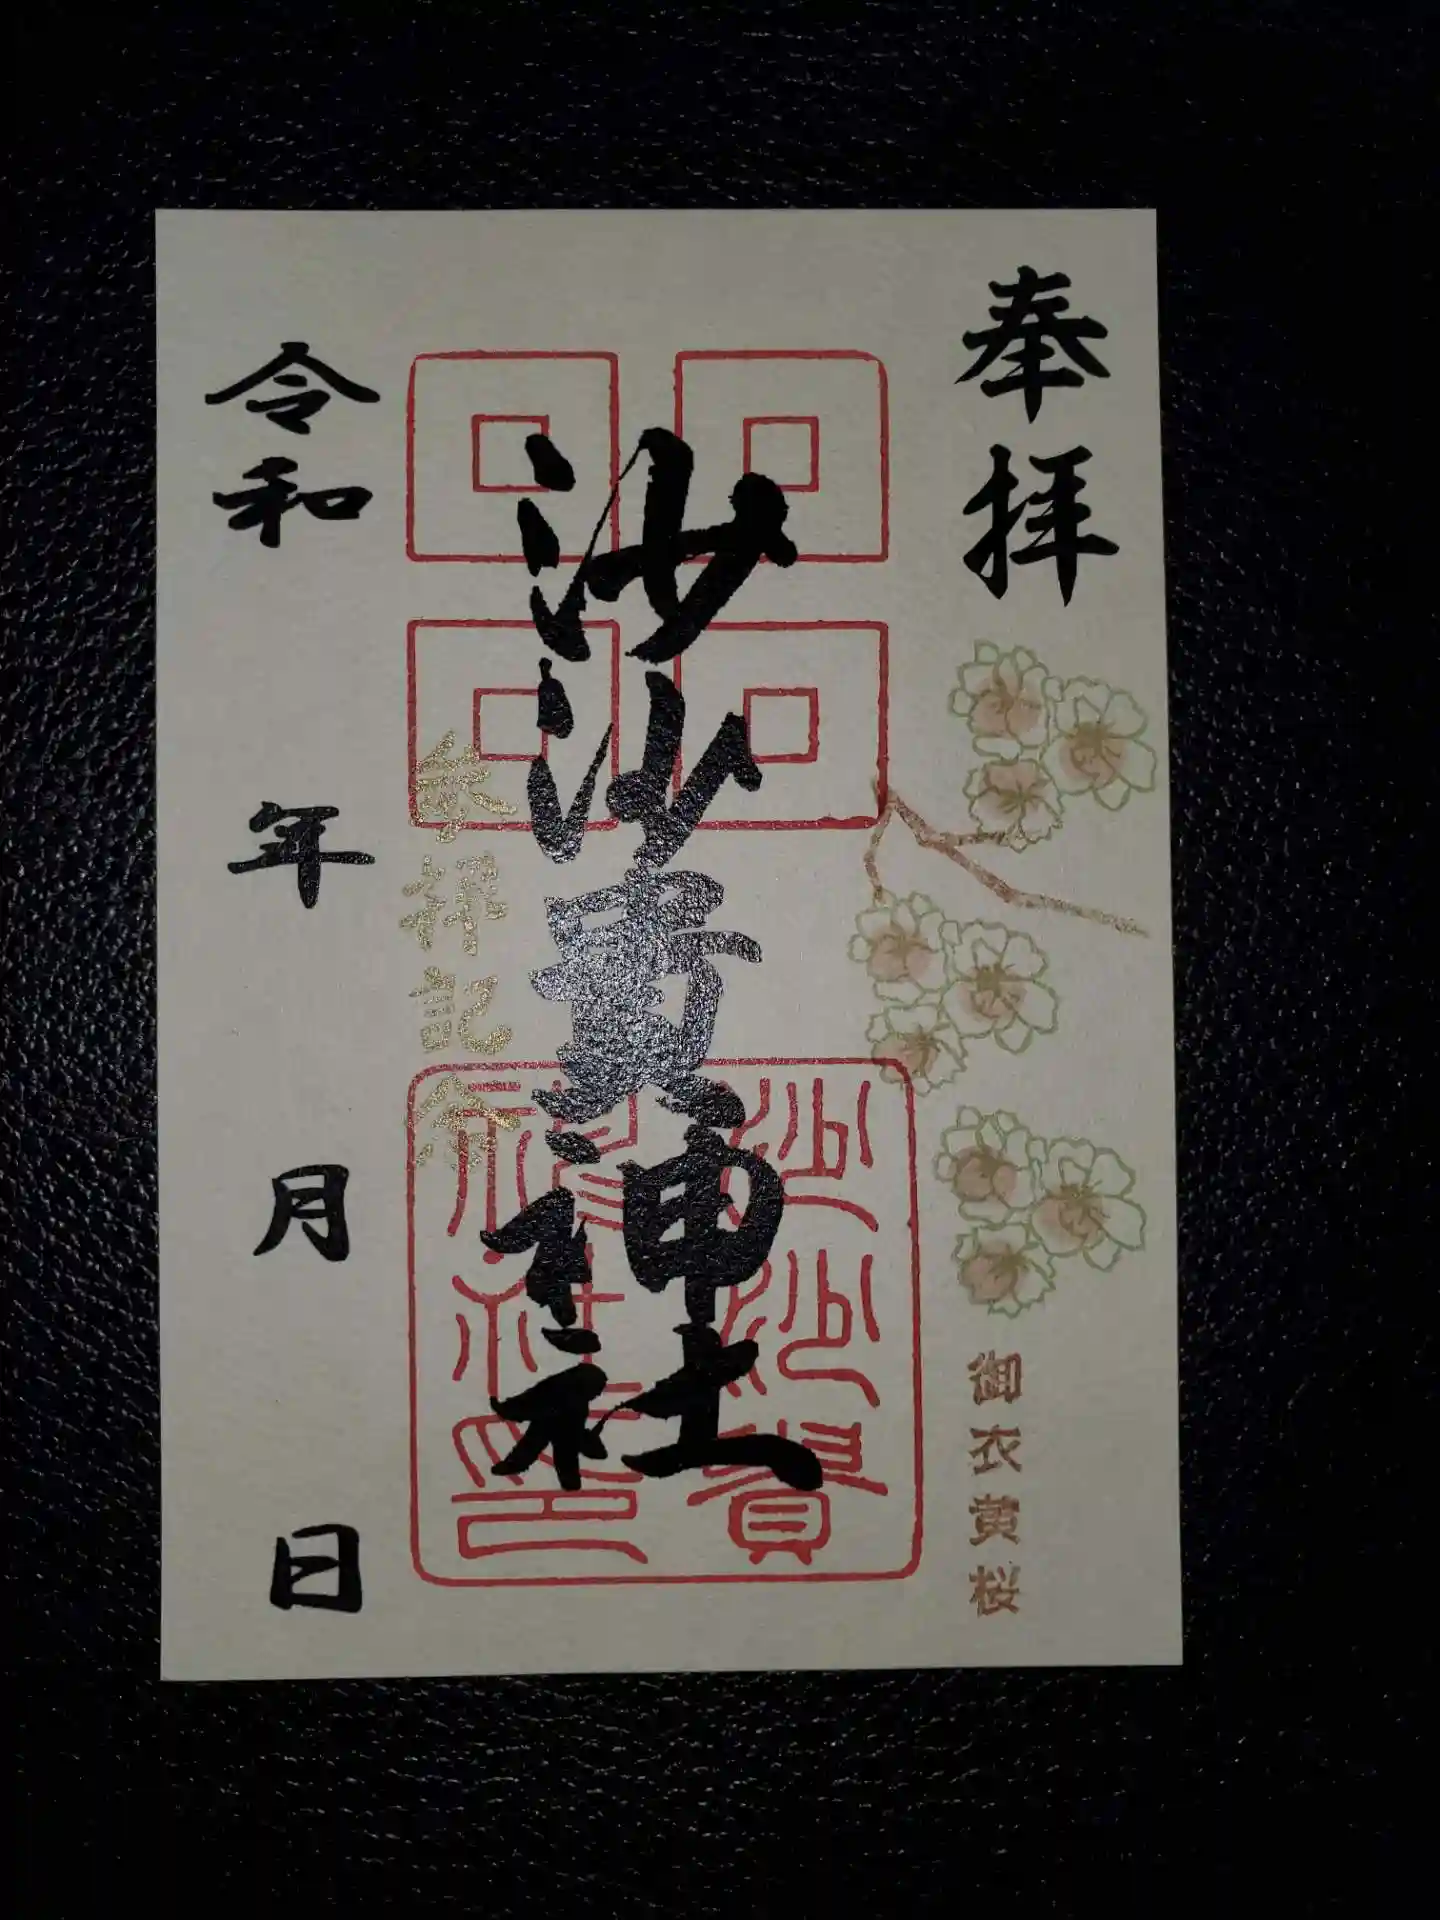 奉拝
御衣黄桜
沙沙貴神社
沙沙貴
神社印
参拝記念
令和 年 月 日